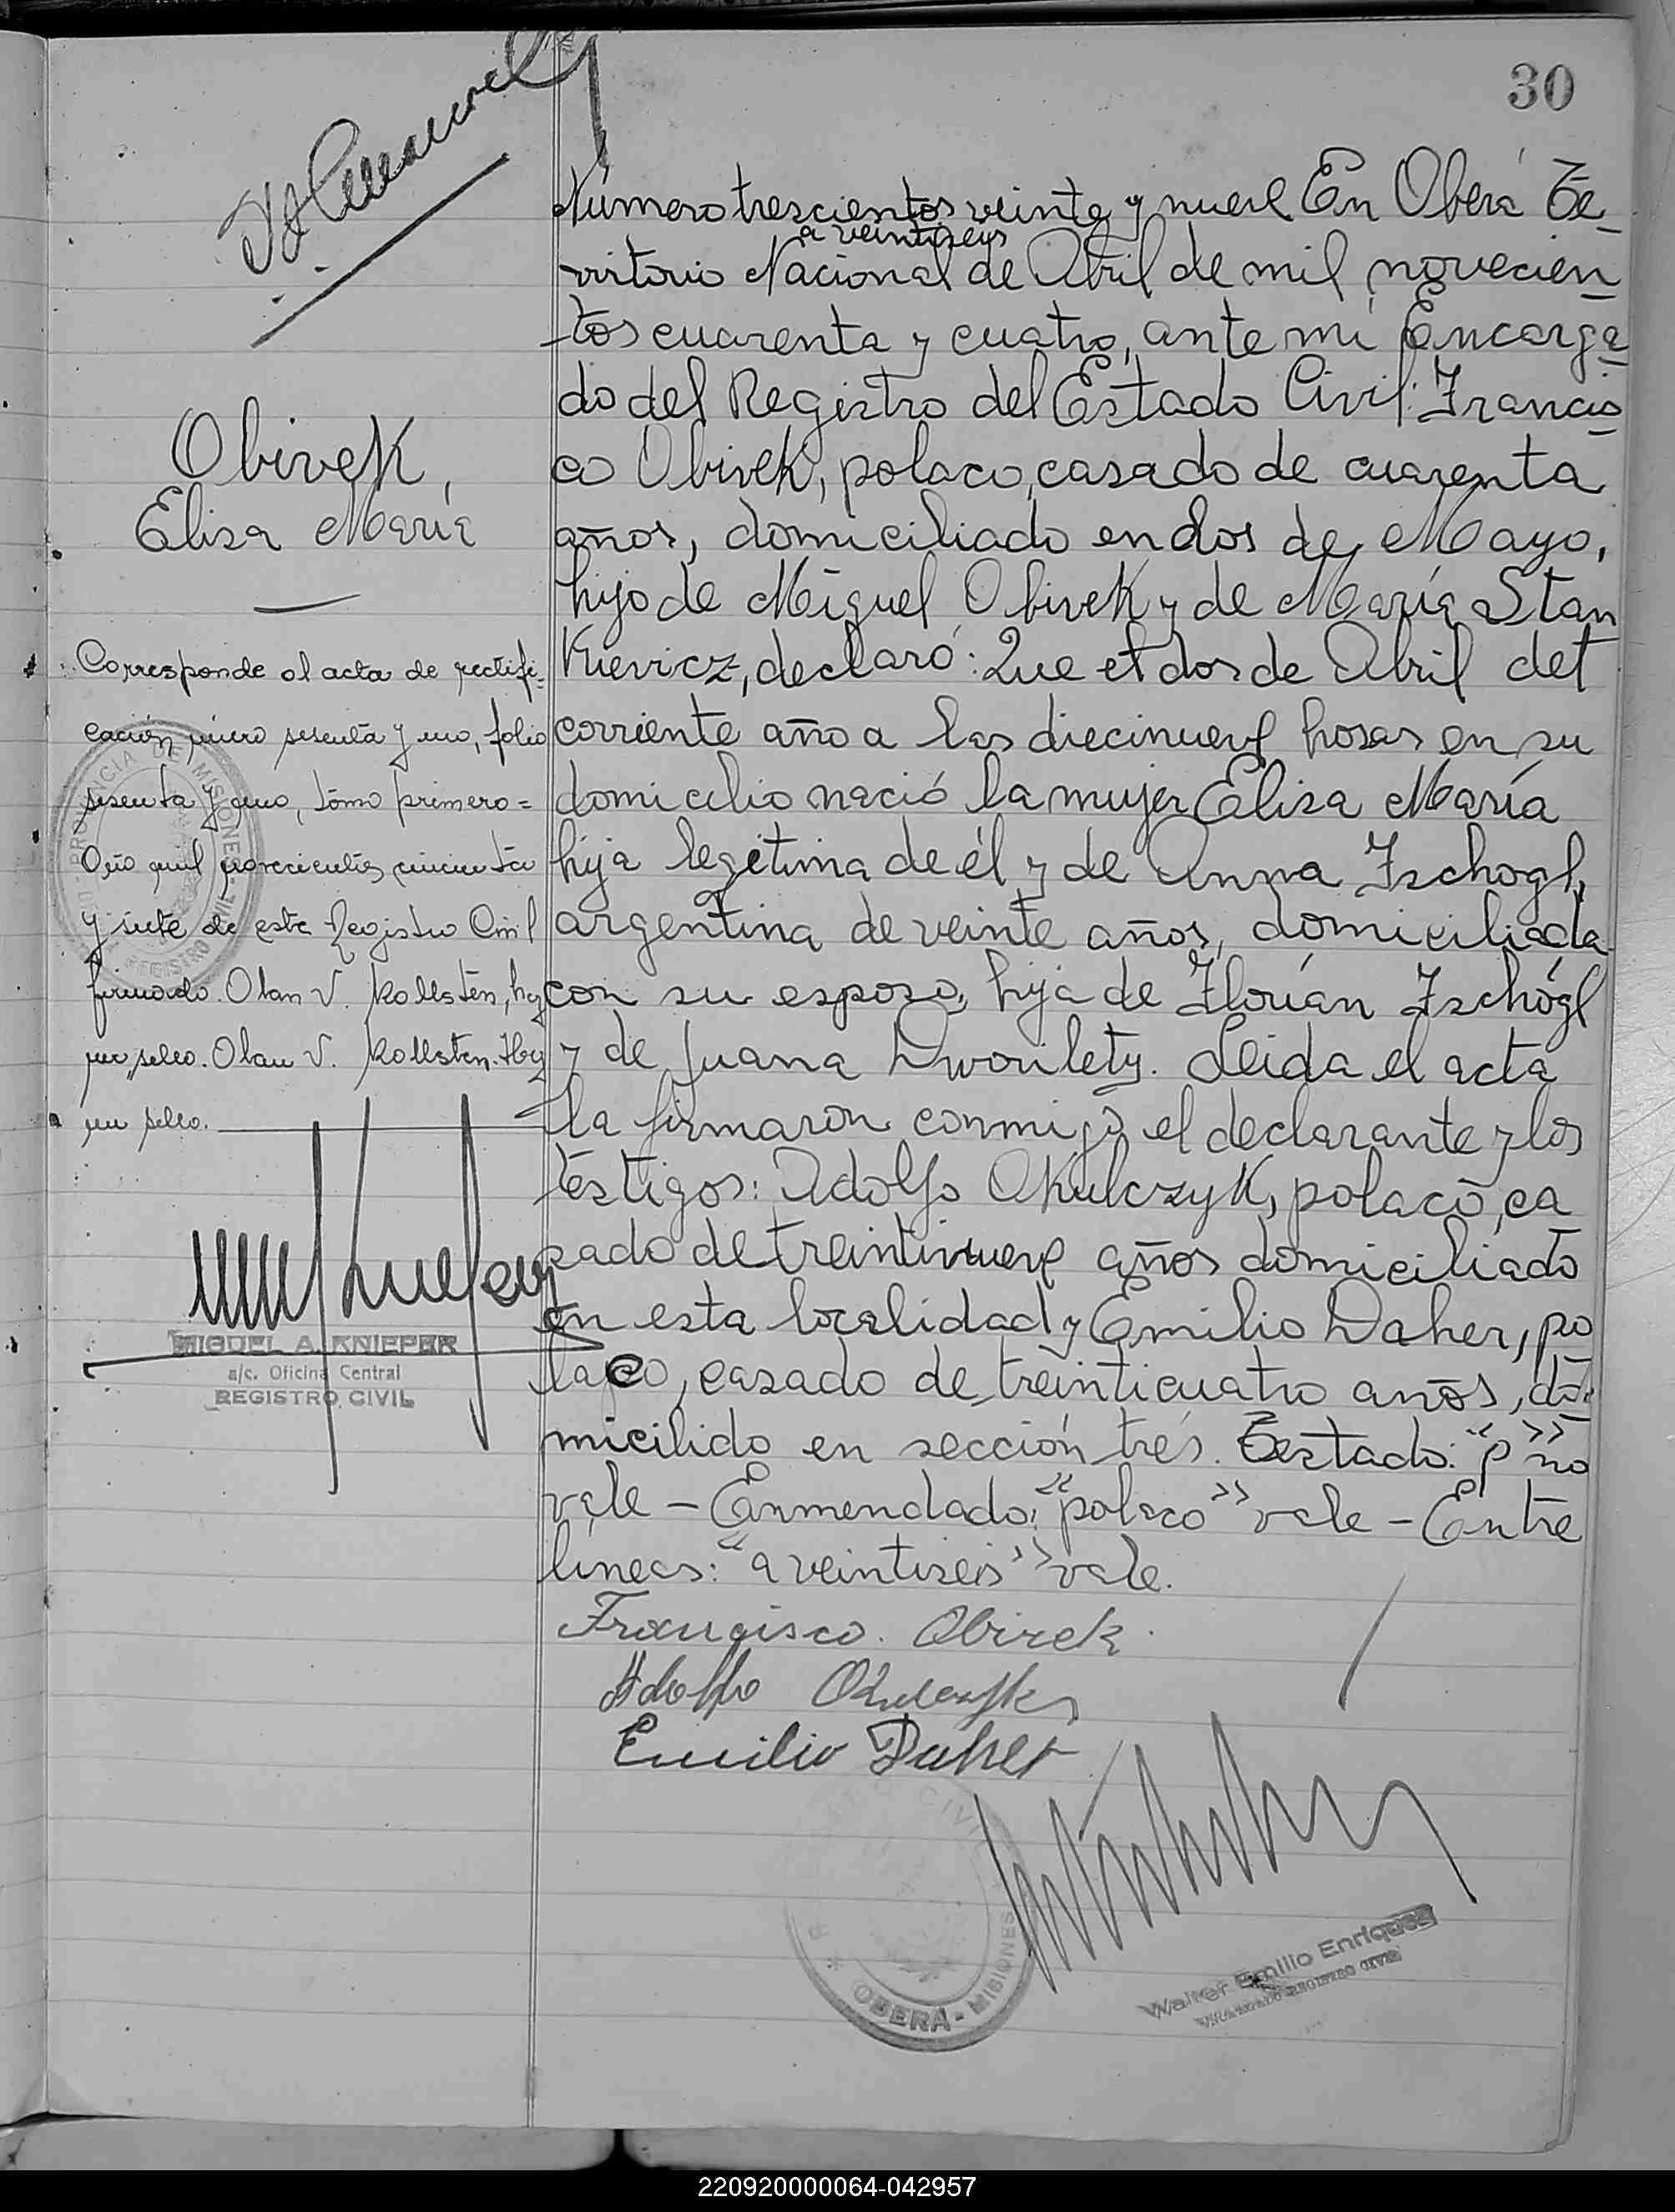 30
Número trescientos veinte y nueve En Oberá Te_
a veintiseis
rritorio Nacional de Abril de mil novecien_
tos cuarenta y cuatro, ante mí Encarga_
do del Registro del Estado Civil: Francis_
co Obirek, polaco, casado de cuarenta
años, domiciliado en dos de Mayo,
hijo de Miguel Obirek y de María Stan
Kievicz, declaró: Que el dos de Abril del
corriente año a las diecinueve horas en su
domicilio nació la mujer Elisa María
hija legítima de él y de Anna Zschogl,
argentina de veinte años, domiciliada
con su esposo, hija de Florían Zschögl
y de Juana Leida el acta
la firmaron conmigo el declarante y los
testigos: Adolfo Okulczyk, polaco, ca
sado de treintinueve años domiciliado
en esta localidad y Emilio Daher, po
laco, casado de treinticuatro años, do_
micilido en sección tres. Testado: "p" no
vale - Enmendado: "polaco" vale - Entre
lineas: "a veintiseis" vale.
Francisco. Obirek.
Adolfo Okulczyk
Emilio Daher
OBERÁ - MISIONES
Walter Emilio Enriquez
ENCARGADO REGISTRO CIVIL
Obirek,
Elisa María
Corresponde al acta de rectifi=
cación número sesenta y uno, folio
sesenta y uno, tomo primero=
Año mil novecientos cincuenta
y siete de este Registro Civil
firmado. Olan V. Kollsten, hay
un sello. Olan V. Kollsten. Hay
un sello.
PROVINCIA DE MISIONES
REGISTRO CIVIL
MIGUEL A. KNIEPER
a/c. Oficina Central
REGISTRO CIVIL
220920000064-042957